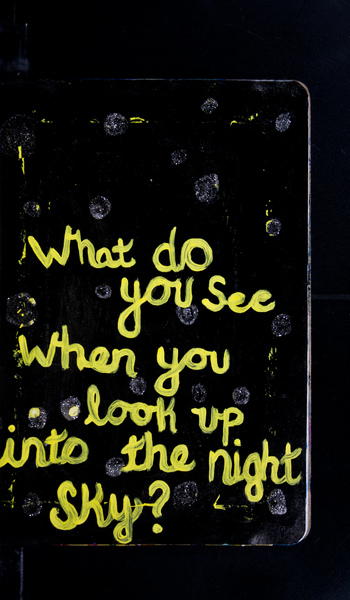 What do
you See
When you
look up
into the night
Sky?